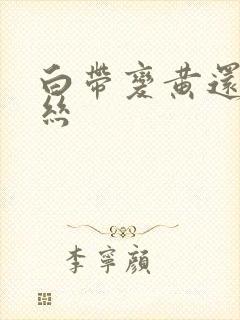 白帶變黃還
絲
李寧顏